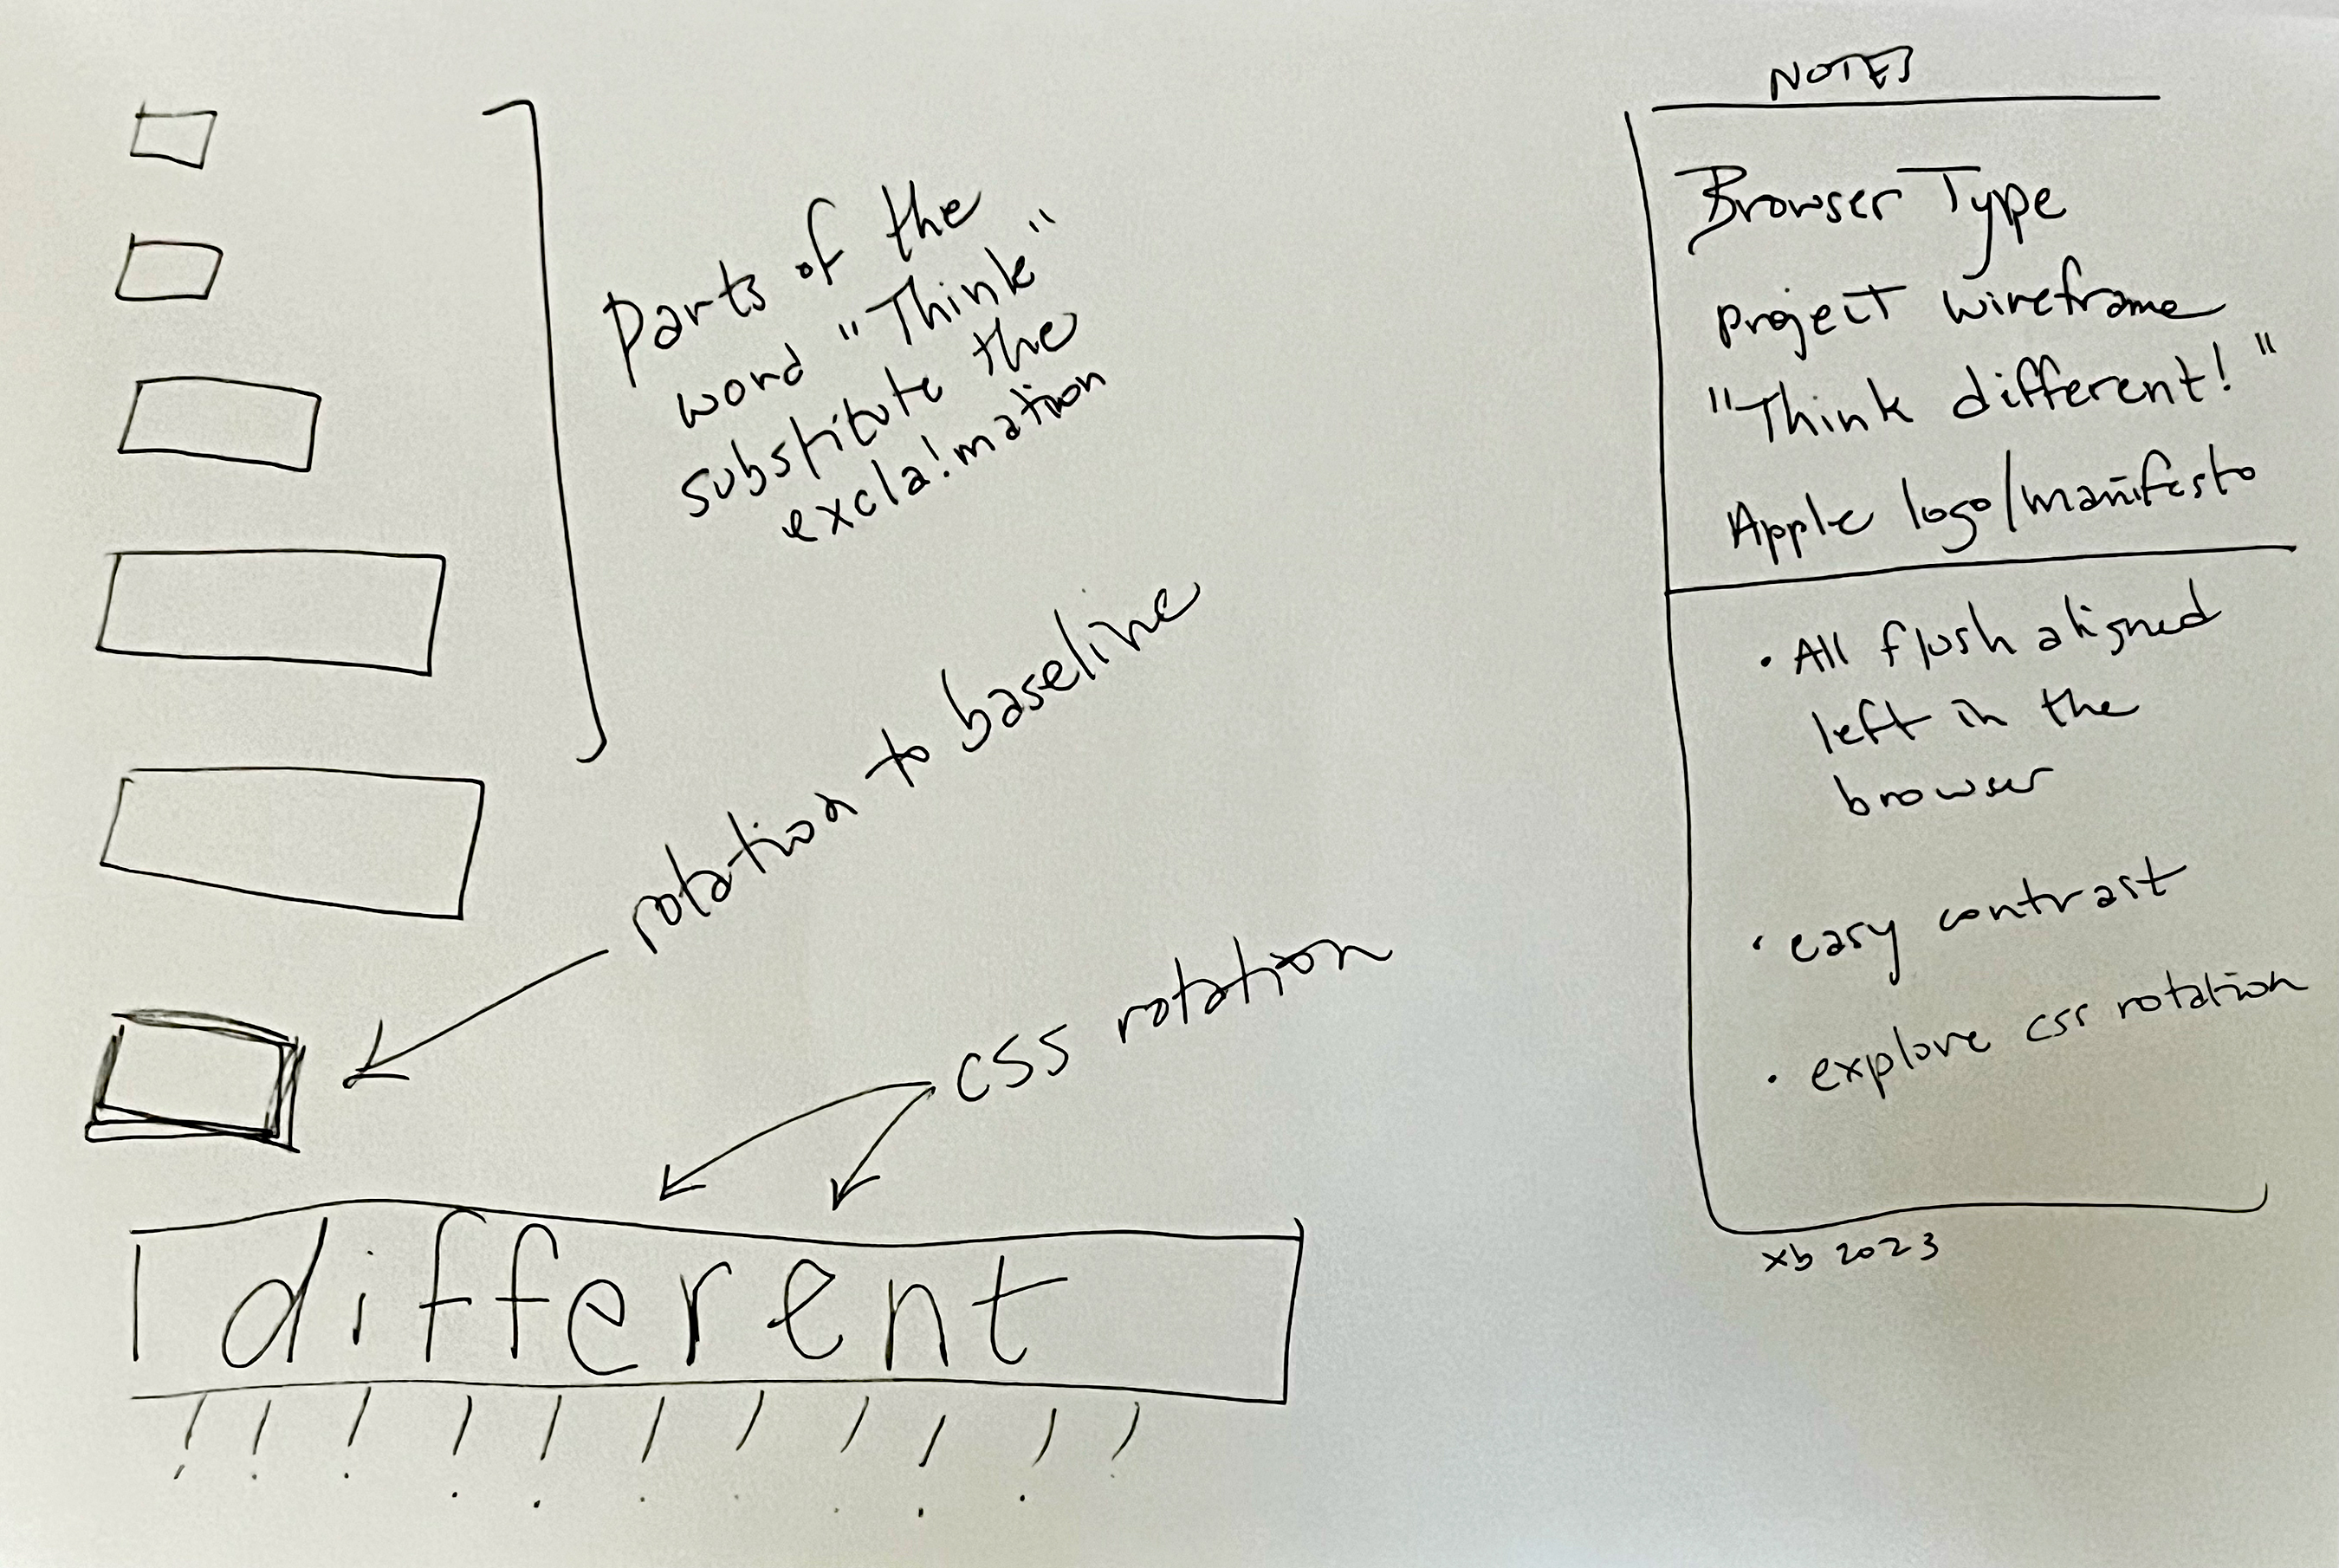 Parts of the
word "Think"
substitute the
excla!mation
rotation to baseline
css rotation
different
! ! ! ! ! ! ! ! ! ! !
NOTES
Browser Type
project wireframe
"Think different!"
Apple logo/manifesto
• All flush aligned
left in the
browser
• easy contrast
• explore css rotation
xb 2023